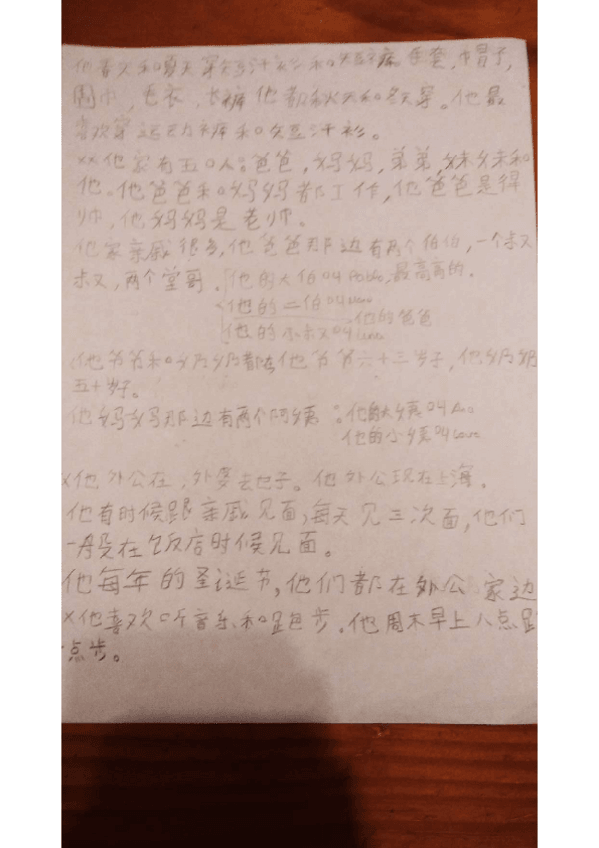 他春天和夏天穿短汗衫和短裤 手套，帽子，
围巾，毛衣，长裤 他都秋天和冬天穿。他最
喜欢穿运动裤和短汗衫。
xx他家有五口人：爸爸，妈妈，弟弟，妹妹和
他。他爸爸和妈妈都工作，他爸爸是
他妈妈是老师。
他家亲戚很多，他爸爸那边有两个伯伯，一个叔
叔，两个堂哥．他的大伯叫 最高高的．
他的二伯叫
他的小叔叫 他的爸爸
他爷爷和奶奶都在 他爷爷六十三岁了，他奶奶
五十岁。
他妈妈那边有两个阿姨：他的大姨叫
他的小姨叫
x他外公在，外婆去世了。他外公现在上海．
他有时候跟亲戚见面，每天见三次面，他们
一般在饭店时候见面。
他每年的圣诞节，他们都在外公家边
x他喜欢听音乐和跑步．他周末早上八点跑
点步。